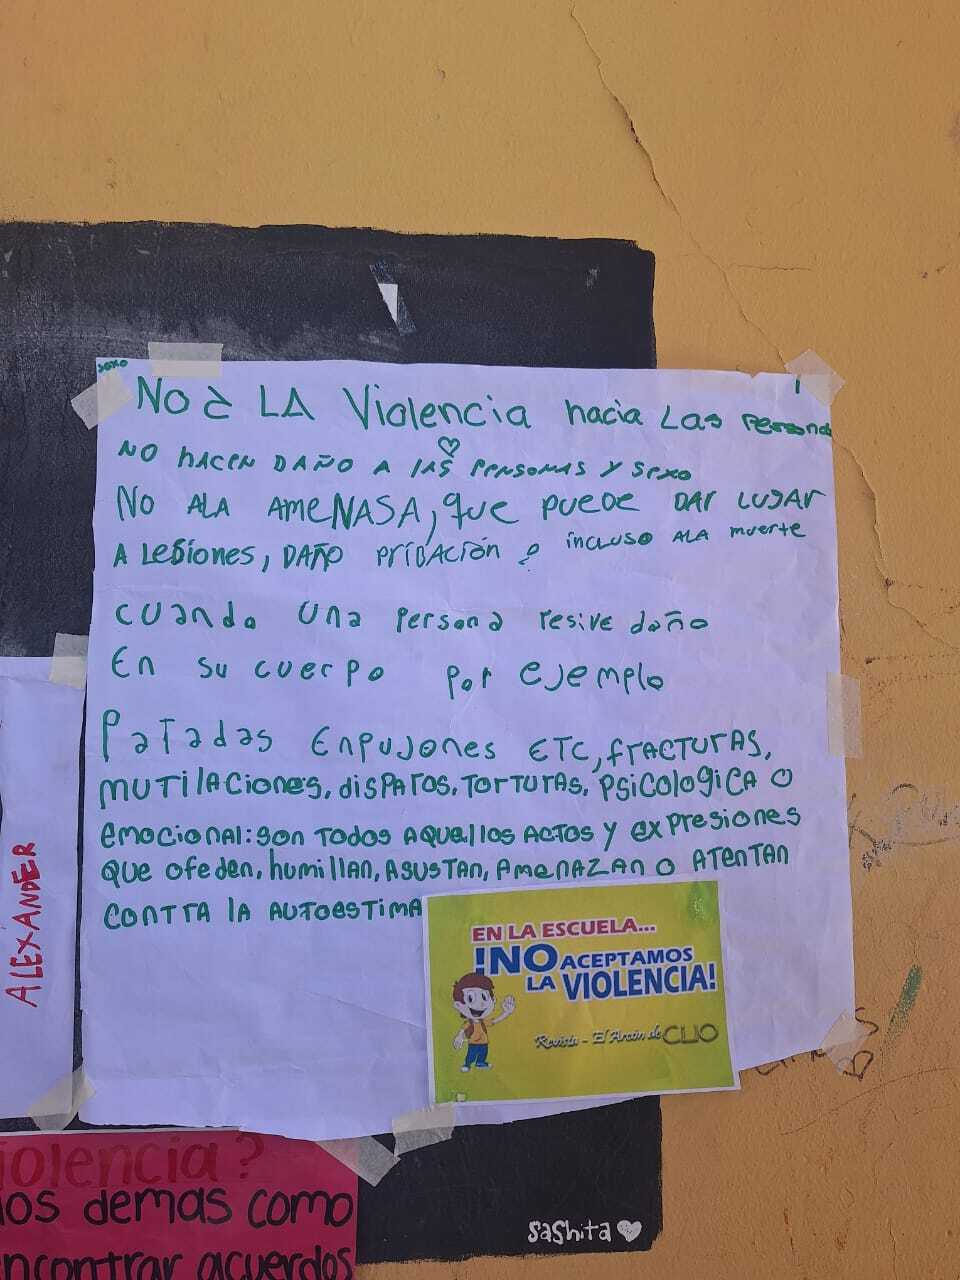 sexo
No à LA Violencia hacia Las Persona
NO HACEN DAÑO A LAS PERSONAS Y SEXO
NO ALA AMENASA, que PUEDE DAR LUGAR
A LESIONES, DAÑO PRIBACIÓN o incluso ALA muerte
cuando una persona resive daño
En su cuerpo por ejemplo
Patadas Enpujones ETC, fRACTURAS,
MUTILACIONES, DISPAROS, TORTURAS, PSICOLOGICA O
emocional: son TODOS AQUELLOS ACTOS y expresiones
que ofeden, humillan, ASUSTAN, AMENAZAN O ATENTAN
CONTRA LA AUTOESTIMA
EN LA ESCUELA...
!NO ACEPTAMOS
LA VIOLENCIA!
Revista - El Arcón de CLIO
ALEXANDER
iolencia?
los demas como
ncontrar acuerdos
sashita